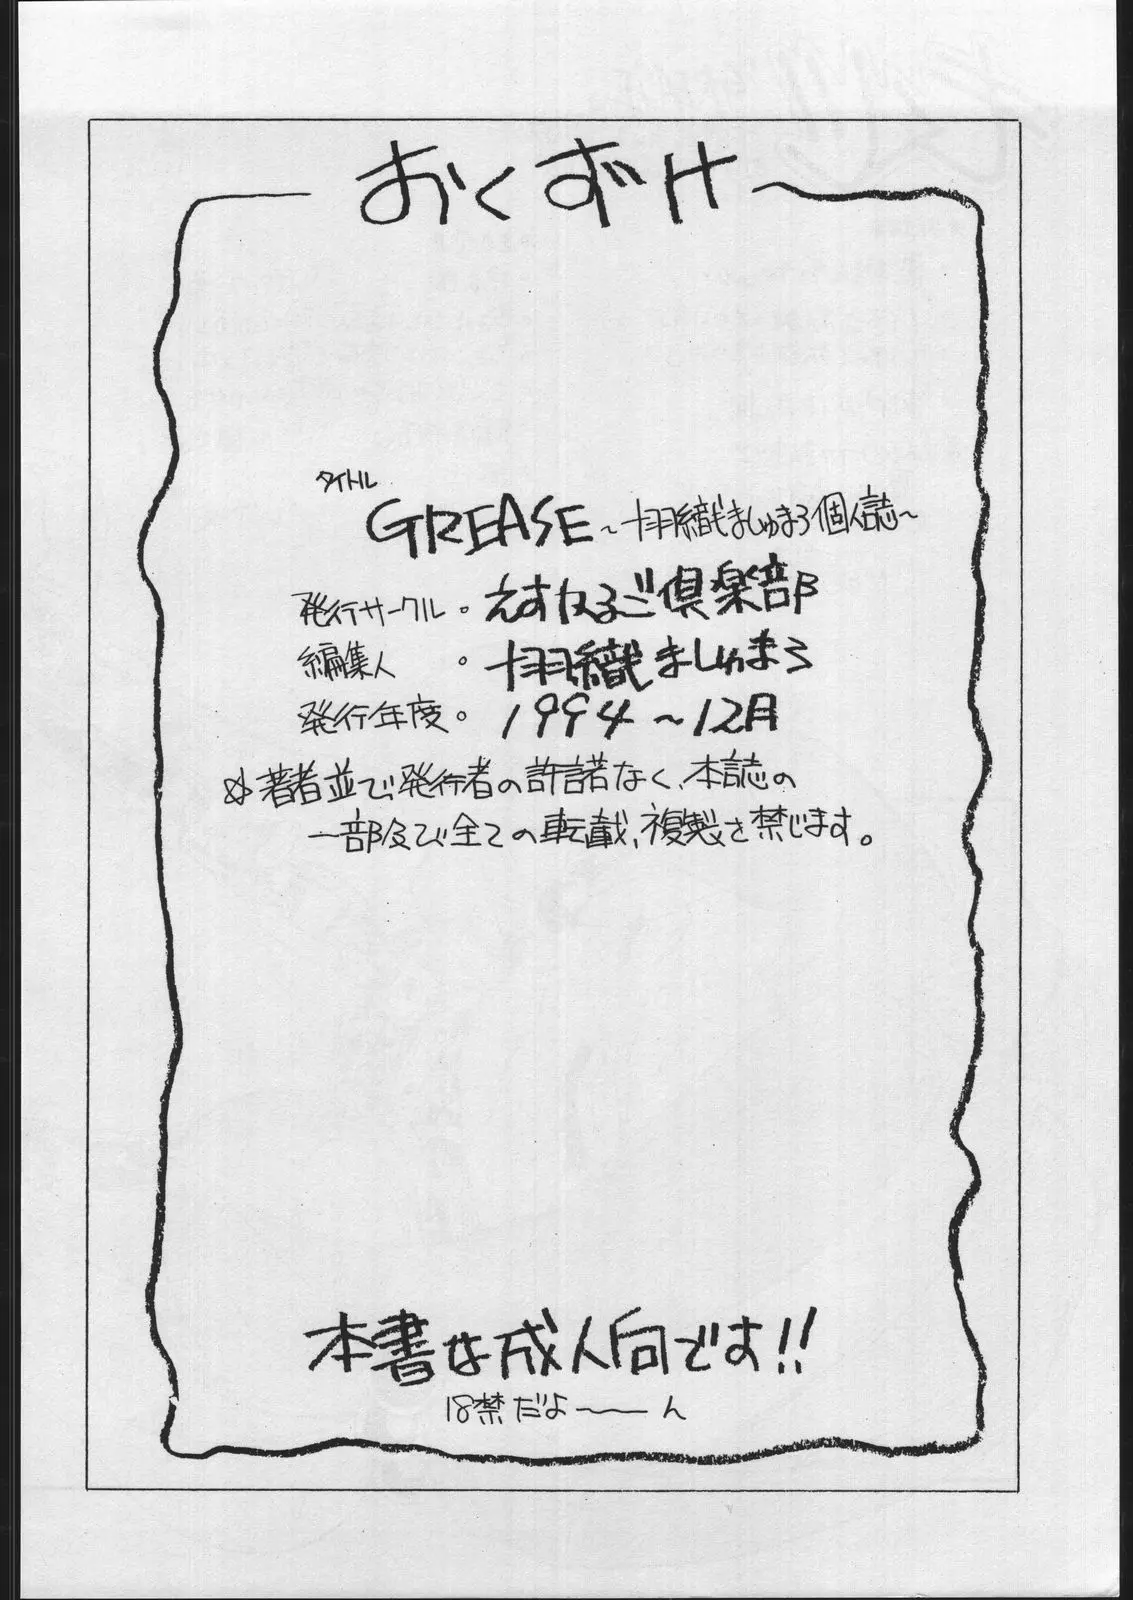 おくずけ
タイトル
GREASE～羽織ましゅまろ個人誌～
発行サークル。えすかるご倶楽部
編集人。羽織ましゅまろ
発行年度。1994～12月
☆著者並び発行者の許諾なく、本誌の
一部及び全ての転載、複製を禁じます。
本書は成人向です!!
18禁だよ――ん